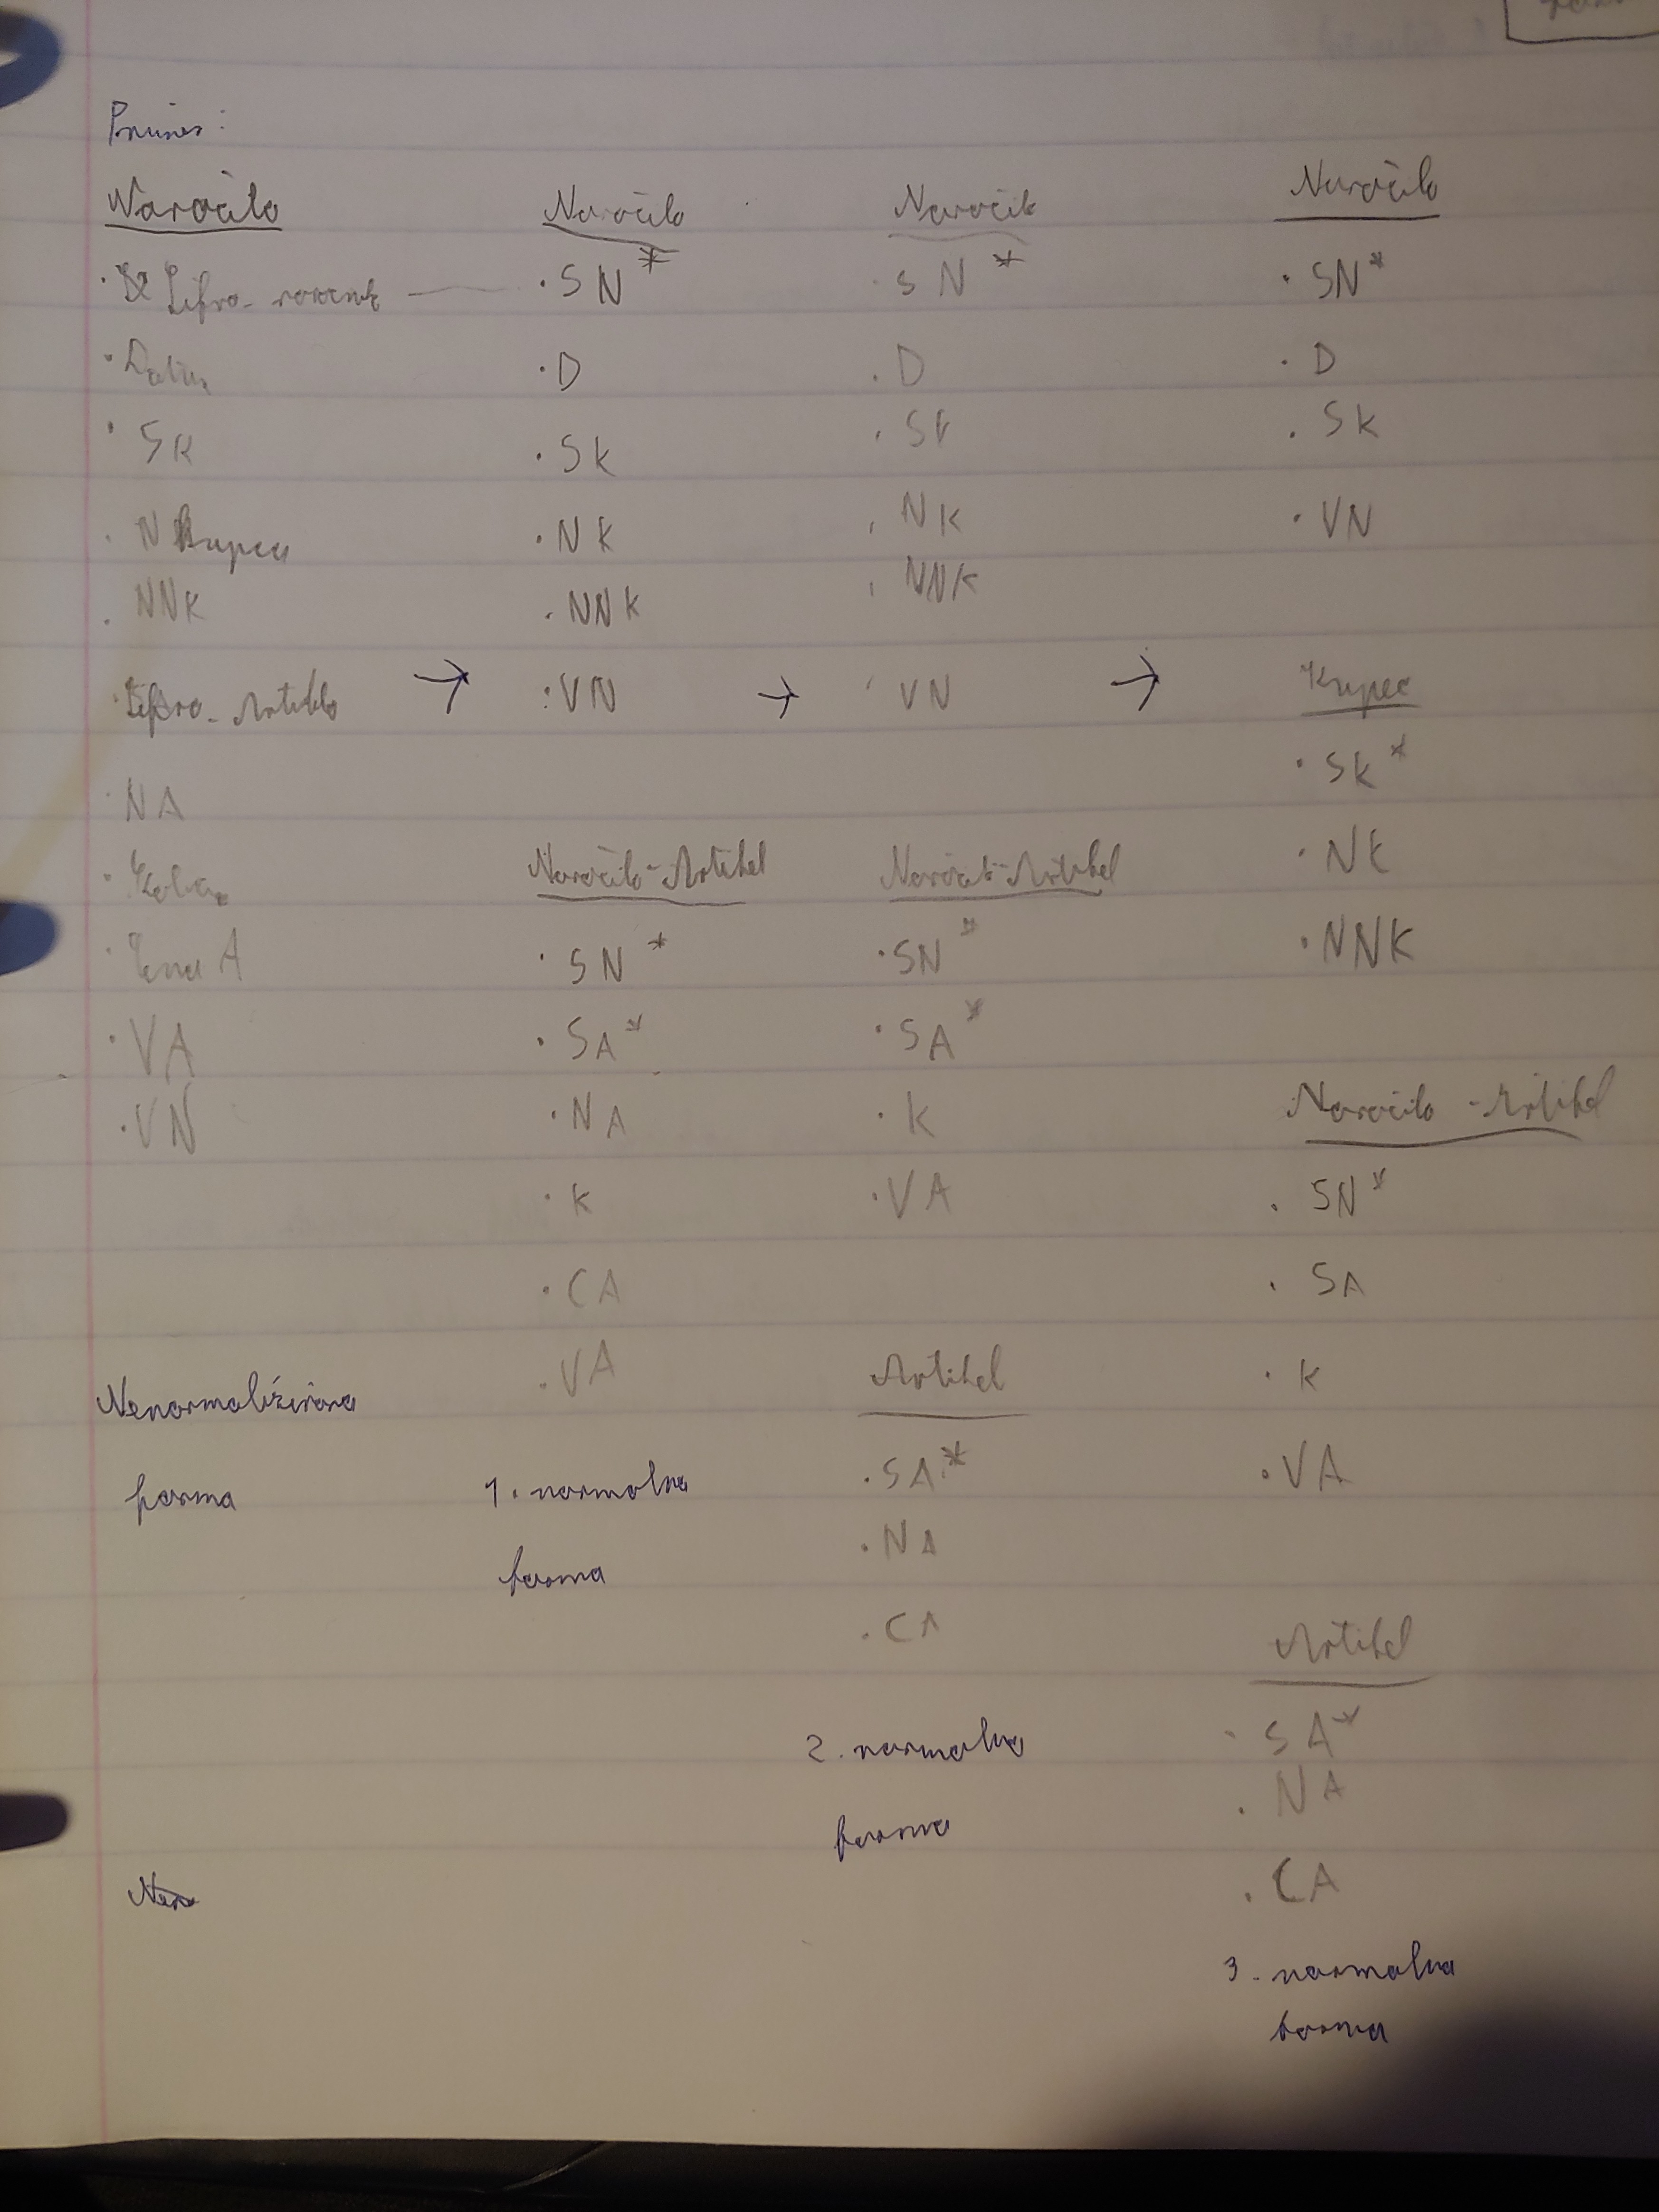 Primer:
Naročilo
Šifra-naročila
Datum
SK
N Kupca
NNK
Šifra-Artikla
NA
Količ.
Cena A
VA
VN
Nenormalizirana
forma
Naročilo
SN*
D
SK
NK
NNK
VN
Naročilo-Artikel
SN*
SA*
NA
K
CA
VA
1. normalna
forma
Naročilo
SN*
D
SK
NK
NNK
VN
Naročilo-Artikel
SN*
SA*
K
VA
Artikel
SA*
NA
CA
2. normalna
forma
Naročilo
SN*
D
SK
VN
Kupec
SK*
NK
NNK
Naročilo-Artikel
SN*
SA
K
VA
Artikel
SA*
NA
CA
3. normalna
forma